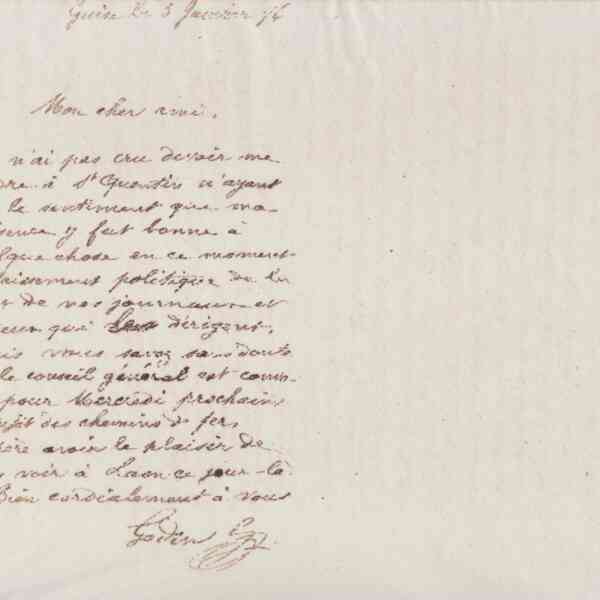 Guise le 3 Janvier 76
Mon cher ami,
n'ai pas cru devoir me
dre à St Quentin n'ayant
le sentiment que ma
sence y fut bonne à
lque chose en ce moment
politique de la
de nos journaux et
ceux qui les dirigent.
is vous savez sans doute
le conseil général est convo-
pour Mercredi prochain
jet des chemins de fer,
père avoir le plaisir de
s voir à Laon ce jour-là
Bien cordialement à vous
Godin